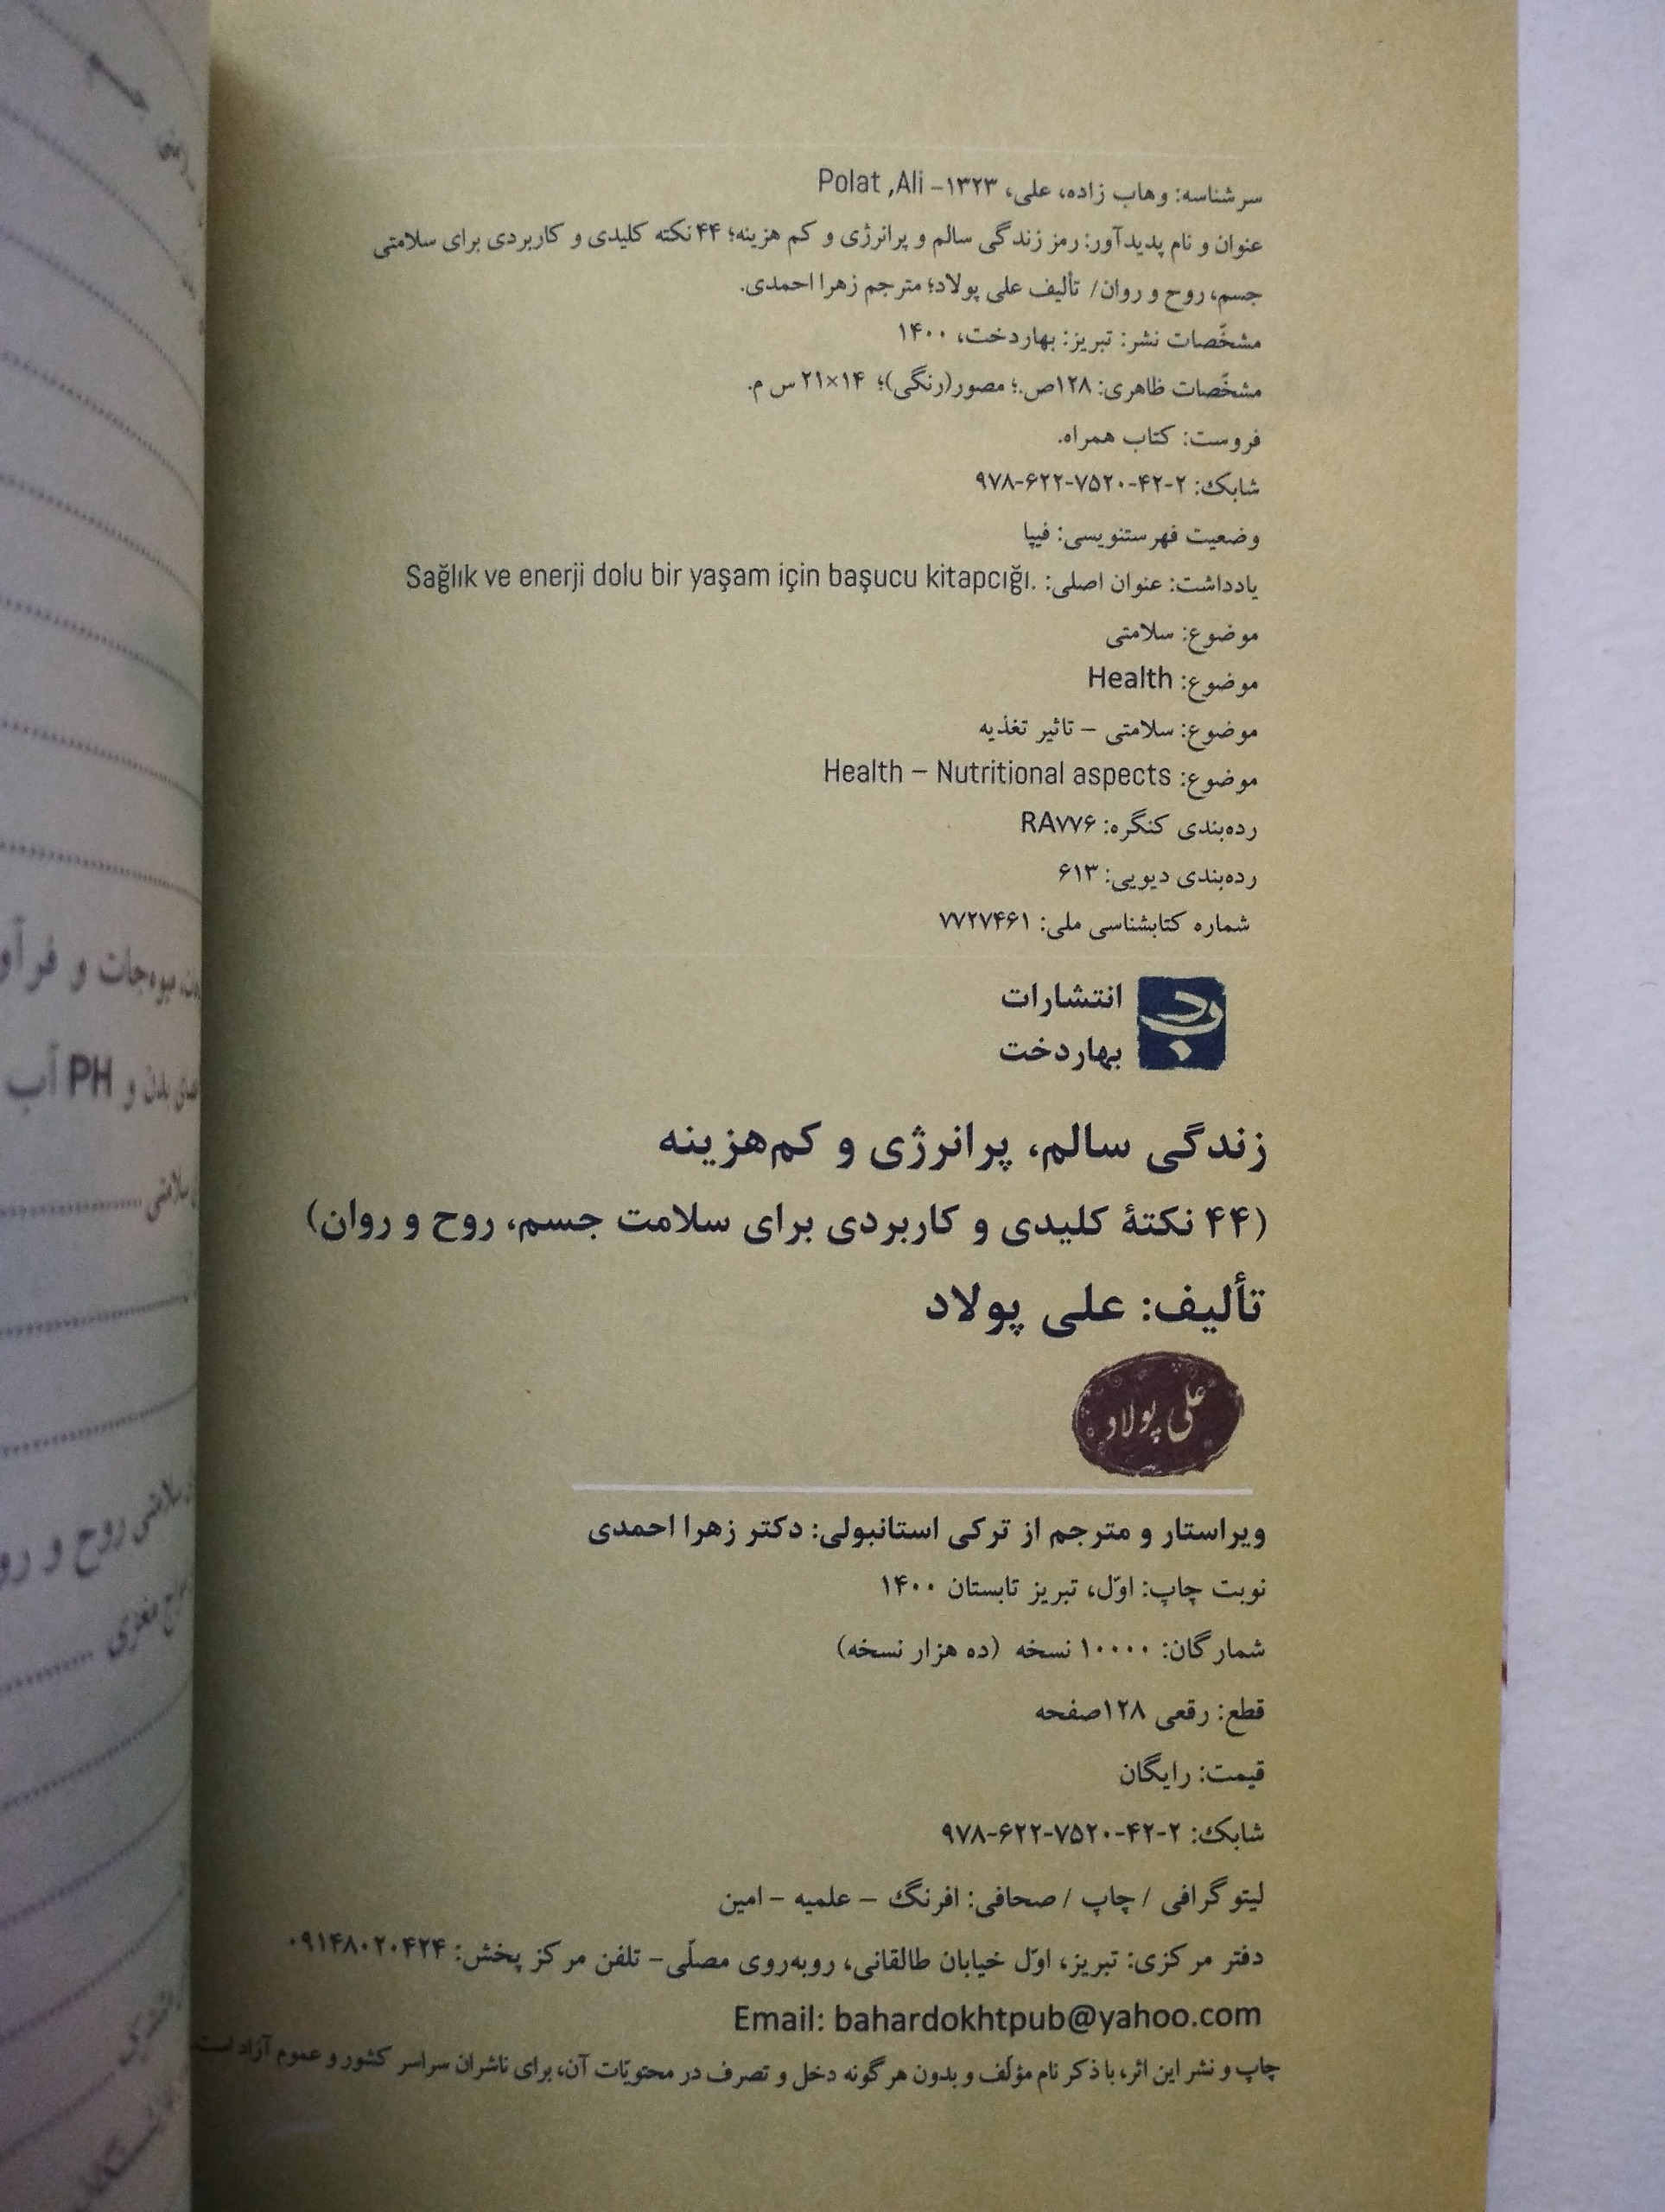 سرشناسه: وهاب زاده، علی، ۱۳۲۳- Polat ,Ali
عنوان و نام پدیدآور: رمز زندگی سالم و پرانرژی و کم هزینه؛ ۴۴ نکته کلیدی و کاربردی برای سلامتی
جسم، روح و روان/ تألیف علی پولاد؛ مترجم زهرا احمدی.
مشخّصات نشر: تبریز: بهاردخت، ۱۴۰۰
مشخّصات ظاهری: ۱۲۸ص.؛ مصور(رنگی)؛ ۱۴×۲۱ س م.
فروست: کتاب همراه.
شابک: ۲-۴۲-۷۵۲۰-۶۲۲-۹۷۸
وضعیت فهرستنویسی: فیپا
یادداشت: عنوان اصلی: Sağlık ve enerji dolu bir yaşam için başucu kitapcığı.
موضوع: سلامتی
موضوع: Health
موضوع: سلامتی – تاثیر تغذیه
موضوع: Health – Nutritional aspects
رده‌بندی کنگره: RA۷۷۶
رده‌بندی دیویی: ۶۱۳
شماره کتابشناسی ملی: ۷۷۲۷۴۶۱
انتشارات
بهاردخت
زندگی سالم، پرانرژی و کم‌هزینه
(۴۴ نکتهٔ کلیدی و کاربردی برای سلامت جسم، روح و روان)
تألیف: علی پولاد
علی پولاد
ویراستار و مترجم از ترکی استانبولی: دکتر زهرا احمدی
نوبت چاپ: اوّل، تبریز تابستان ۱۴۰۰
شمارگان: ۱۰۰۰۰ نسخه (ده هزار نسخه)
قطع: رقعی ۱۲۸صفحه
قیمت: رایگان
شابک: ۲-۴۲-۷۵۲۰-۶۲۲-۹۷۸
لیتوگرافی / چاپ / صحافی: افرنگ – علمیه – امین
دفتر مرکزی: تبریز، اوّل خیابان طالقانی، روبه‌روی مصلّی- تلفن مرکز پخش: ۰۹۱۴۸۰۲۰۴۲۴
Email: bahardokhtpub@yahoo.com
چاپ و نشر این اثر، با ذکر نام مؤلّف و بدون هرگونه دخل و تصرف در محتویّات آن، برای ناشران سراسر کشور و عموم آزاد است.
میوه‌جات و
بدن و PH آب
سلامتی
روح و
مغزی